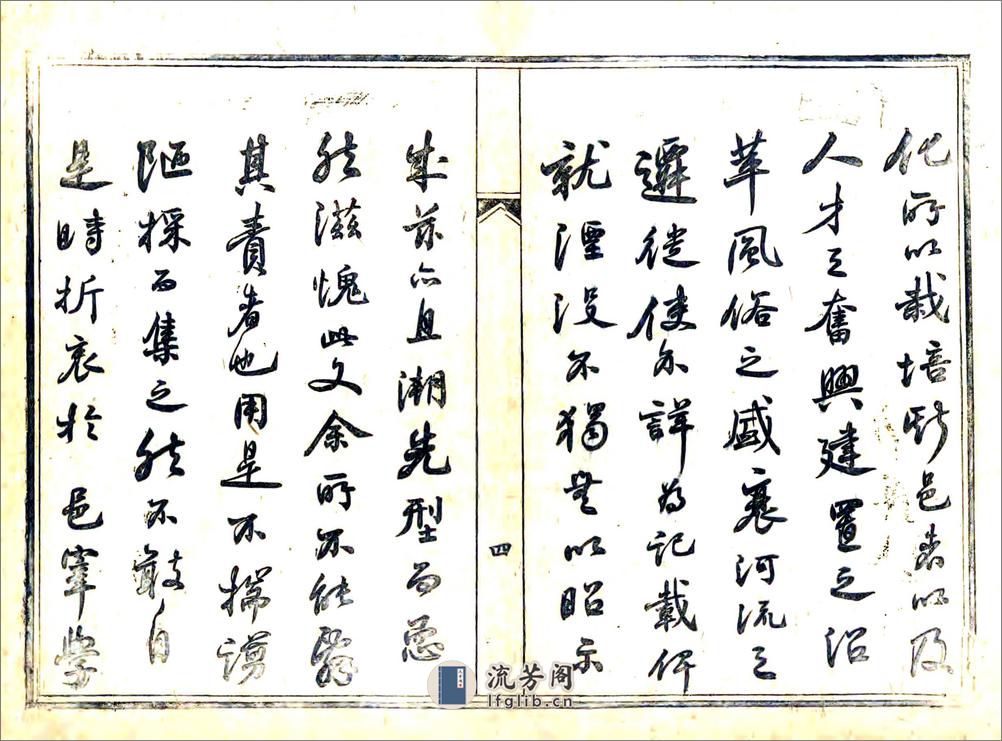 化所以栽培斯邑者以及
人才之奮興建置之沿
革風俗之盛衰河流之
遷徙使不詳為記載俾
就湮没不獨無以昭示
来茲亦且溯先型而恧
然滋愧此文余所不能辭
其責者也用是不揣謭
陋採而集之然不敢自
是時折衷於邑宰學
四
流芳阁
lfglib.cn